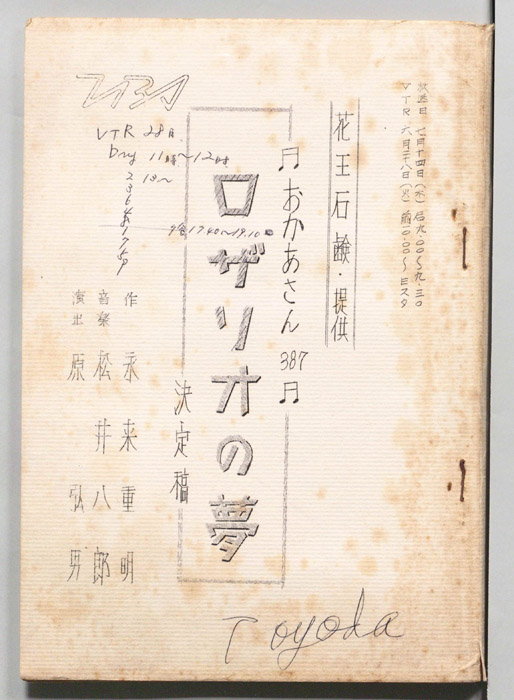 放送日 七月十四日(水) 后九.〇〇〜九.三〇
VTR 六月二十八日(火)
花王石鹸・提供
♬おかあさん387♬
ロザリオの夢
決定稿
作 永来重明
音楽 松井八郎
演出 原弘男
VTR 28日
Dry 11時〜12時
13〜
17.40〜19.10
Toyoda